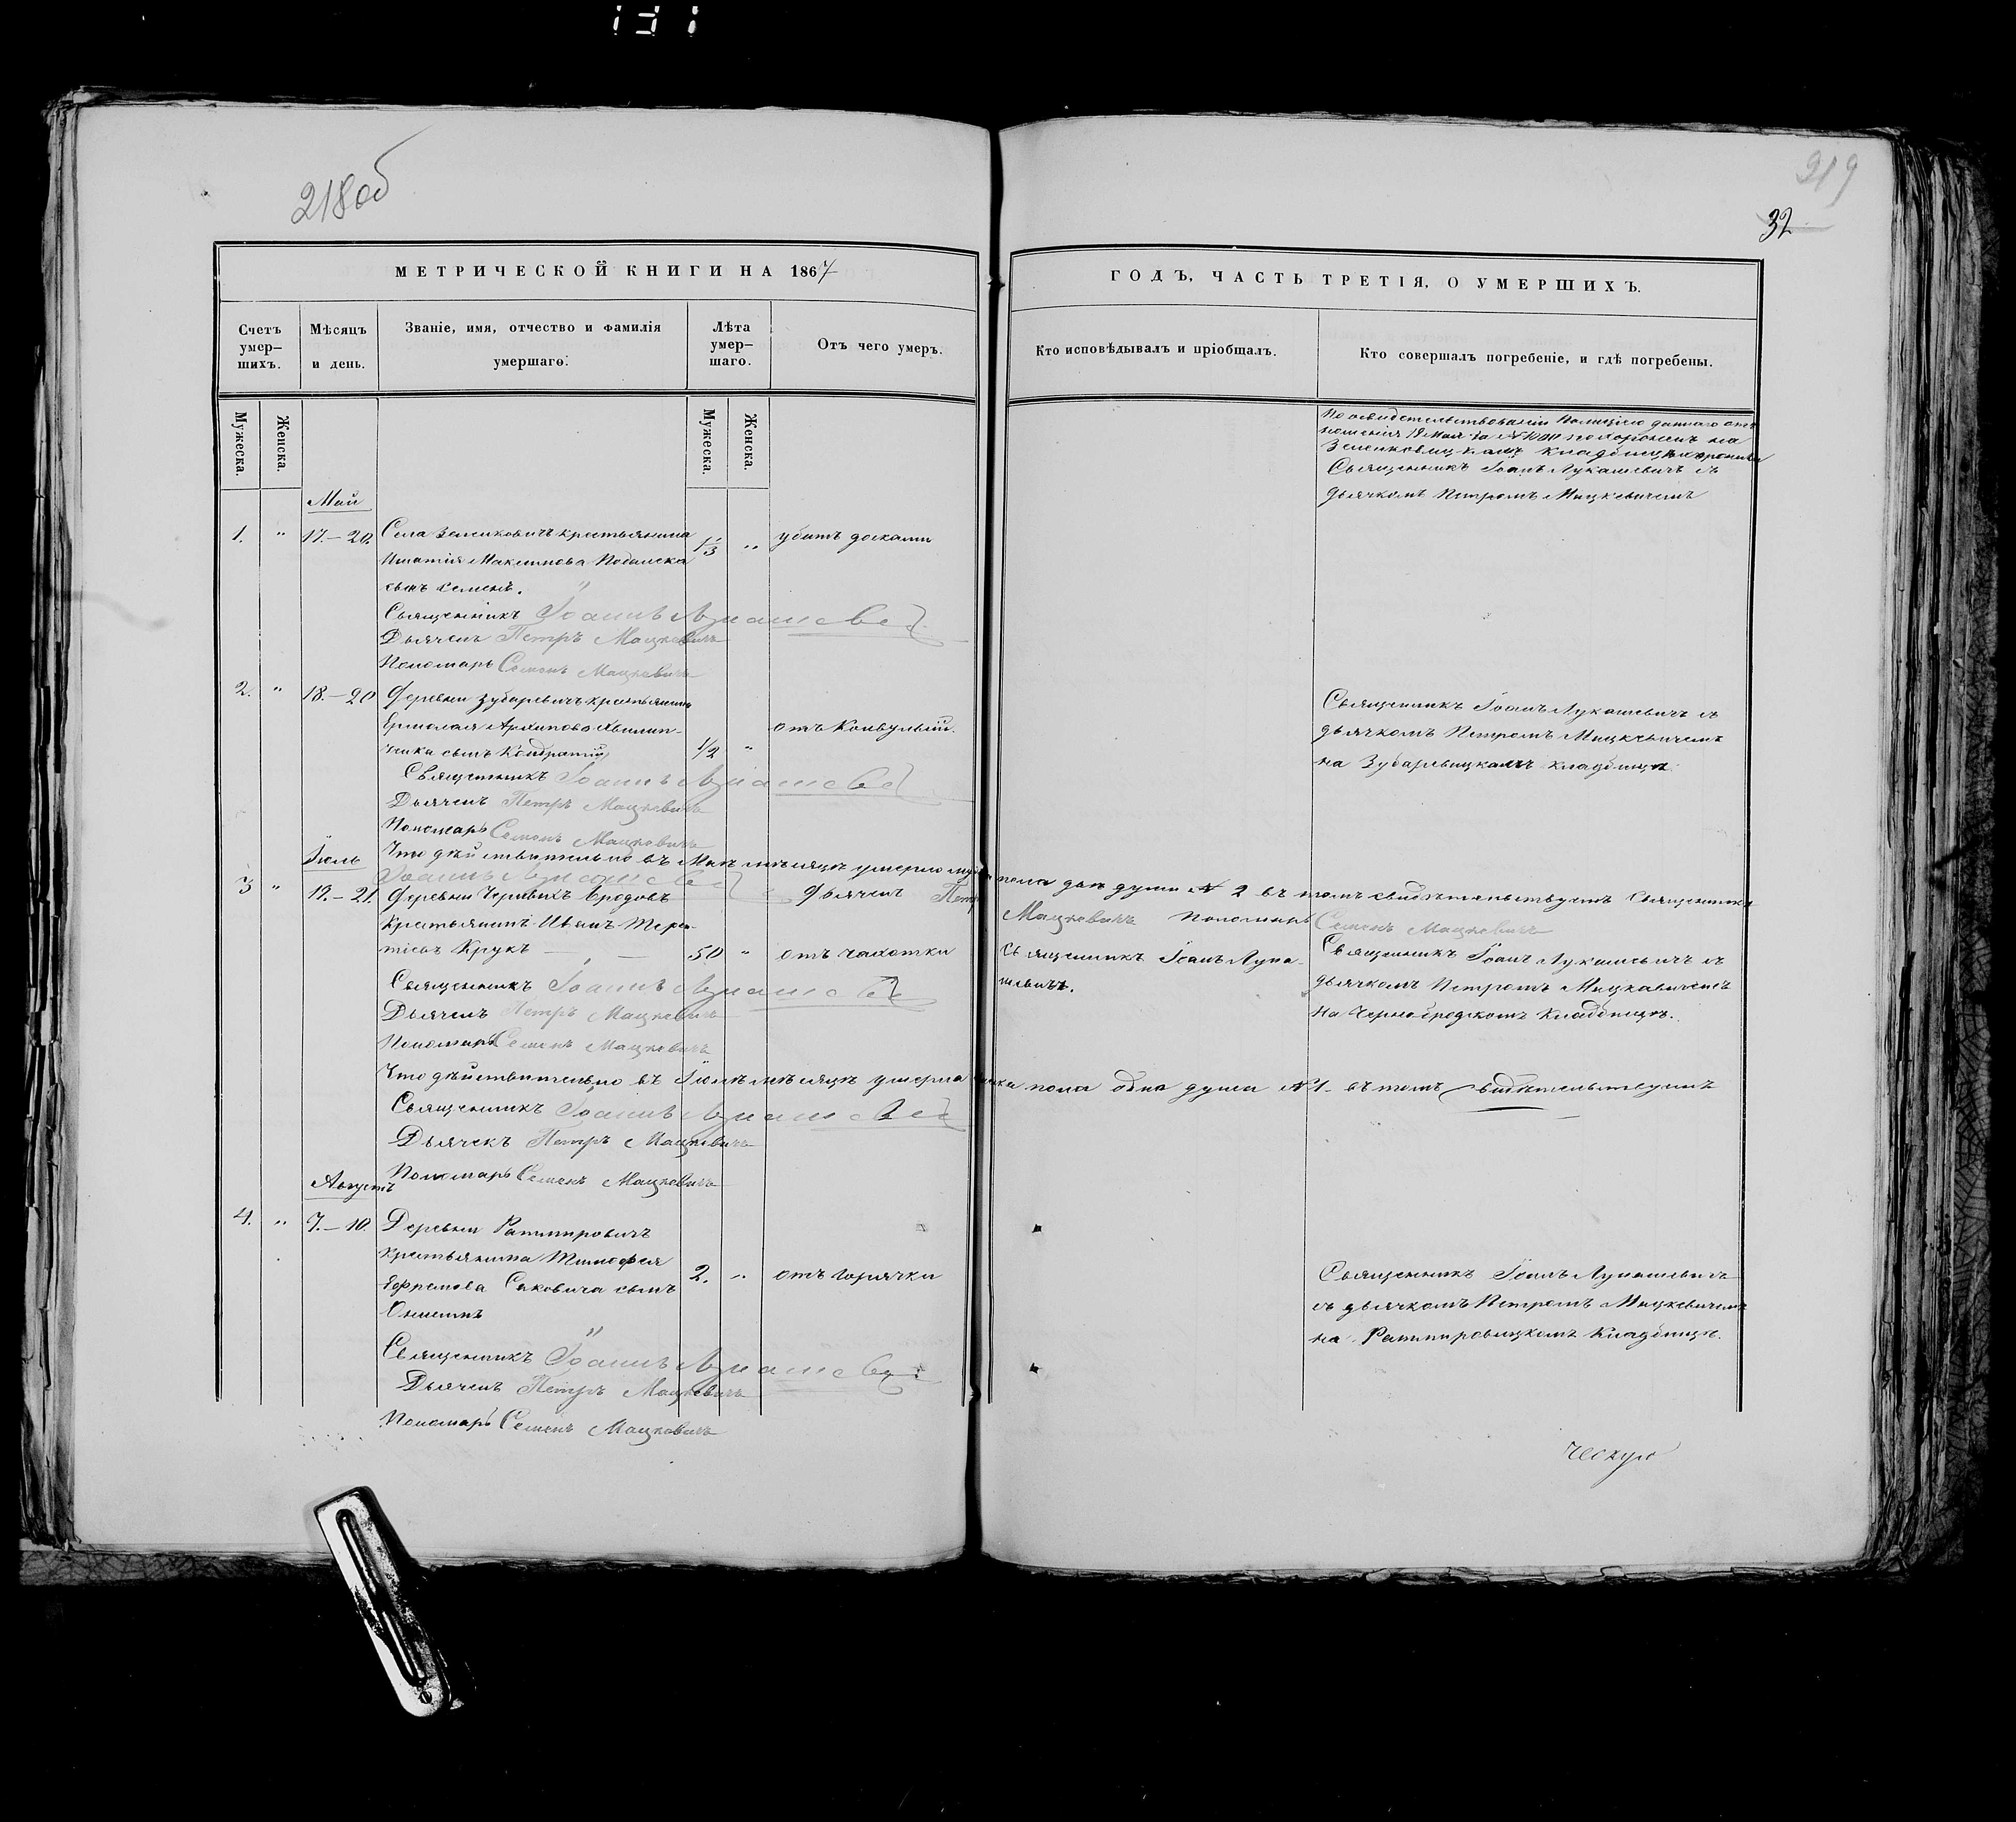 218 об
219
32
МЕТРИЧЕСКОЙ КНИГИ НА 1867
ГОДЪ, ЧАСТЬ ТРЕТІЯ, О УМЕРШИХЪ.
Счетъ умер-шихъ.
Мѣсяцъ и день.
Званіе, имя, отчество и фамилія умершаго.
Лѣта умер-шаго.
Отъ чего умеръ.
Кто исповѣдывалъ и пріобщалъ.
Кто совершалъ погребеніе, и гдѣ погребены.
Мужеска.
Женска.
Мужеска.
Женска.
Май
1. " 17.–20. Села Зеленковичъ крестьянина 1/3 " убитъ досками
Игнатія Максимова
сынъ Семенъ.
Священникъ Іоаннъ Лукашевичъ
Дьячекъ Петръ Мацкевичъ
Пономарь Семенъ Мацкевичъ
19 Мая за № похороненъ на
Зеленковицкомъ кладбищѣ
Священникъ Іоанъ Лукашевичъ съ
дьячкомъ Петромъ Мацкевичемъ
2. " 18.–20 Деревни Зубаревичъ крестьянина
Ермолая Архипова
сынъ Кондратій 1/2 " отъ Конвульсій.
Священникъ Іоаннъ Лукашевичъ
Дьячекъ Петръ Мацкевичъ
Пономарь Семенъ Мацкевичъ
Священникъ Іоанъ Лукашевичъ съ
дьячкомъ Петромъ Мацкевичемъ
на Зубаревицкомъ кладбищѣ
Что дѣйствительно въ Маѣ мѣсяцѣ умерло пола двѣ души № 2 въ томъ свидѣтельствуемъ Священникъ
Іоаннъ Лукашевичъ Дьячекъ Петръ Мацкевичъ Пономарь Семенъ Мацкевичъ
Іюль
3 " 19.–21. Деревни Бродовъ
Крестьянинъ Иванъ Терен-
тіевъ Крукъ 50 " отъ чахотки
Священникъ Іоаннъ Лукашевичъ
Дьячекъ Петръ Мацкевичъ
Пономарь Семенъ Мацкевичъ
Священникъ Іоанъ Лука-
шевичъ.
Священникъ Іоанъ Лукашевичъ съ
дьячкомъ Петромъ Мацкевичемъ
на Черно-бродскомъ кладбищѣ.
Что дѣйствительно въ Іюлѣ мѣсяцѣ умерла пола одна душа № 1. въ томъ свидѣтельствуемъ
Священникъ Іоаннъ Лукашевичъ
Дьячекъ Петръ Мацкевичъ
Пономарь Семенъ Мацкевичъ
Августъ
4. " 7.–10. Деревни Ратмировичъ
крестьянина Тимофея
Ефремова Саковича сынъ 2. " отъ горячки
Священникъ Іоаннъ Лукашевичъ
Дьячекъ Петръ Мацкевичъ
Пономарь Семенъ Мацкевичъ
Священникъ Іоанъ Лукашевичъ
съ дьячкомъ Петромъ Мацкевичемъ
на Ратмировицкомъ кладбищѣ.
ческую